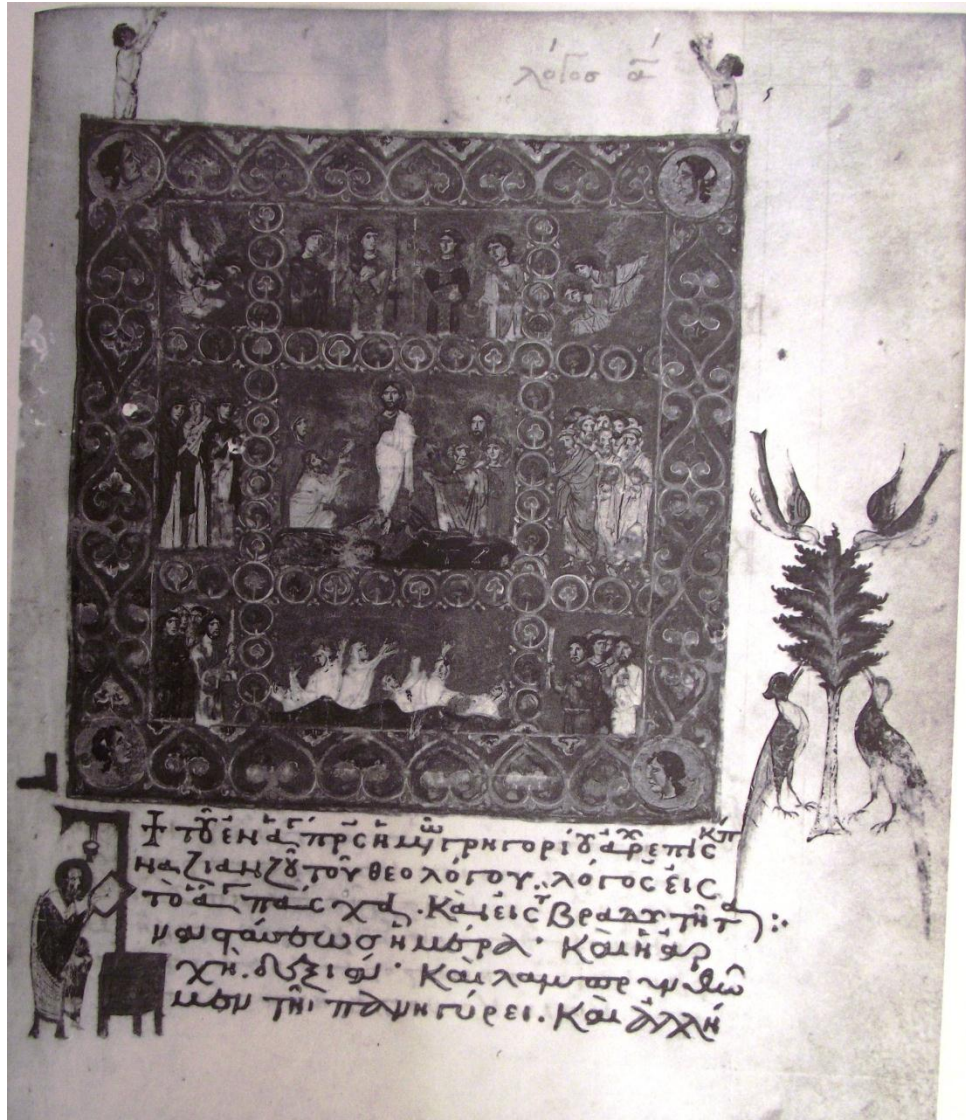 λόγος α
τοῦ ἐν ἁγ πρς ἡμ γρηγορίου ἀρχεπισκπ
ναζιανζοῦ τοῦ θεολόγου. λόγος εἰς
τὸ ἅγ πάσχα. καὶ εἰς βραδυτητ
ναστάσεως ἡμέρα· καὶ ἡ ἀρ
χὴ δεξιά· καὶ λαμπρυνθῶ
μεν τῆι πανηγύρει. καὶ ἀλλή